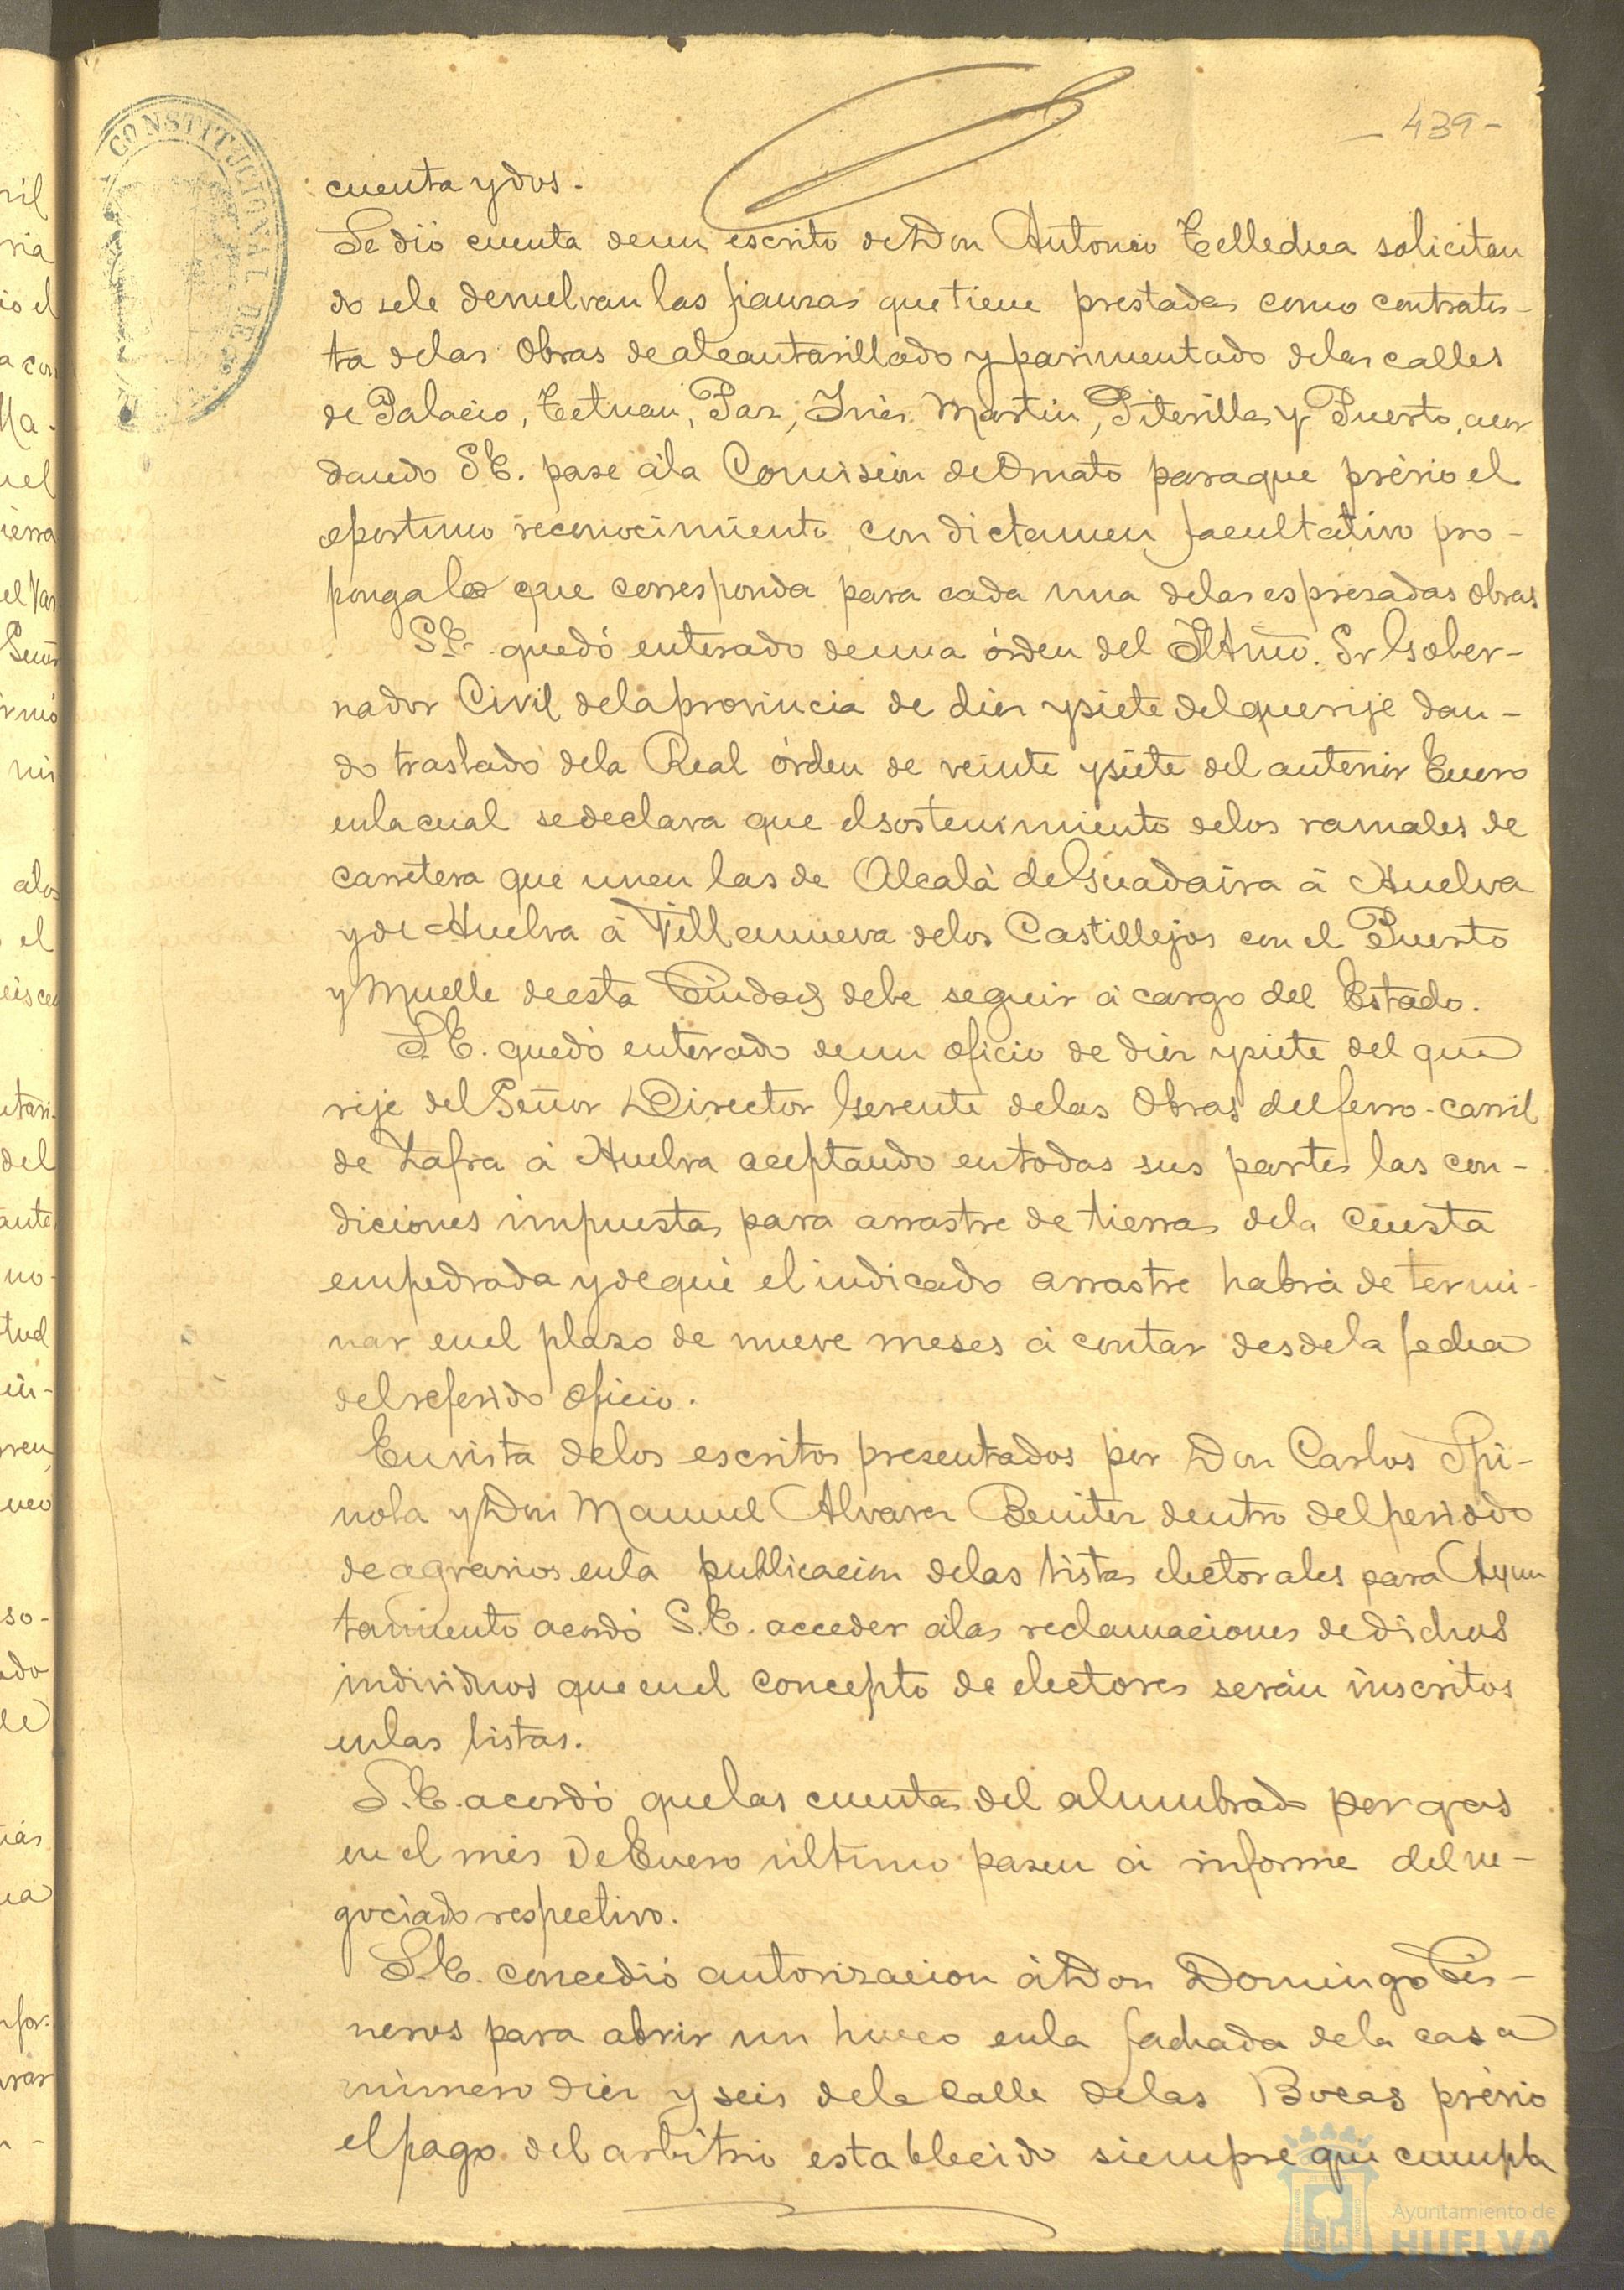 - 439 -
CONSTITUCIONAL DE
cuenta y dos.
Se dió cuenta de un escrito de Don Antonio solicitan
do se le devuelvan las fianzas que tiene prestadas como contratis-
ta de las Obras de alcantarillado y pavimentado de las calles
de Palacio, Tetuan, Paz, Inés Martin, Piterilla y Puerto, acor
dando S.E. pase á la Comisión de Ornato para que prévio el
oportuno reconocimiento con dictamen facultativo pro-
ponga lo que corresponda para cada una de las espresadas Obras
S.E. quedó enterado de una órden del Iltmo. Sr Gober-
nador Civil de la provincia de diez y siete del que rije dan-
do traslado de la Real órden de veinte y siete del anterior Enero
en la cual se declara que el sostenimiento de los ramales de
carretera que unen las de Alcalá de Guadaira á Huelva
y de Huelva á Villanueva de los Castillejos con el Puerto
y Muelle de esta Ciudad debe seguir á cargo del Estado.
S.E. quedó enterado de un oficio de diez y siete del que
rije del Señor Director Gerente de las Obras del ferro-carril
de Zafra á Huelva aceptando en todas sus partes las con-
diciones impuestas para arrastre de tierras de la Cuesta
empedrada y de que el indicado arrastre habrá de termi-
nar en el plazo de nueve meses á contar desde la fecha
del referido oficio.
En vista de los escritos presentados por Don Carlos Spi-
nola y Don Manuel Alvarez Benitez dentro del periodo
de agravios en la publicacion de las listas electorales para Ayun
tamiento acordó S.E. acceder á las reclamaciones de dichos
individuos que en el concepto de electores serán inscritos
en las listas.
S.E. acordó que las cuentas del alumbrado por gas
en el més de Enero último pasen á informe del ne-
gociado respectivo.
S.E. concedió autorizacion á Don Domingo Cis-
neros para abrir un hueco en la fachada de la casa
número diez y seis de la Calle de las Bocas prévio
el pago del arbitrio establecido siempre que cumpla
Ayuntamiento de
HUELVA